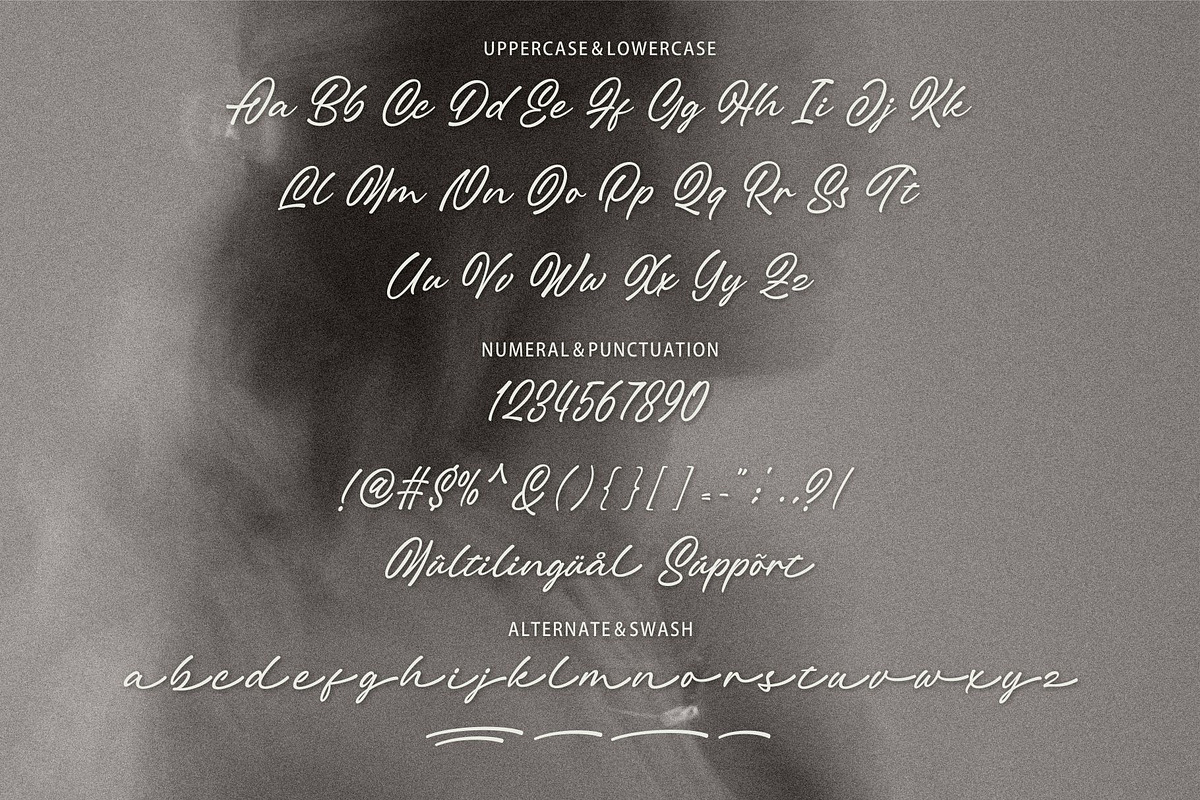 UPPERCASE & LOWERCASE
Aa Bb Cc Dd Ee Ff Gg Hh Ii Jj Kk
Ll Mm Nn Oo Pp Qq Rr Ss Tt
Uu Vv Ww Xx Yy Zz
NUMERAL & PUNCTUATION
1234567890
!@#$%^&(){}[]=-":;'.,?/
Mûltilingüål Súppõrt
ALTERNATE & SWASH
abcdefghijklmnorstuvwxyz